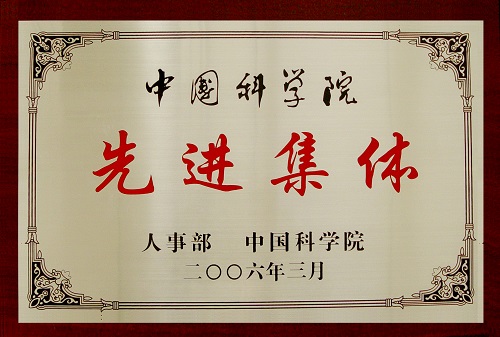 中國科学院
先进集体
人事部 中国科学院
二〇〇六年三月